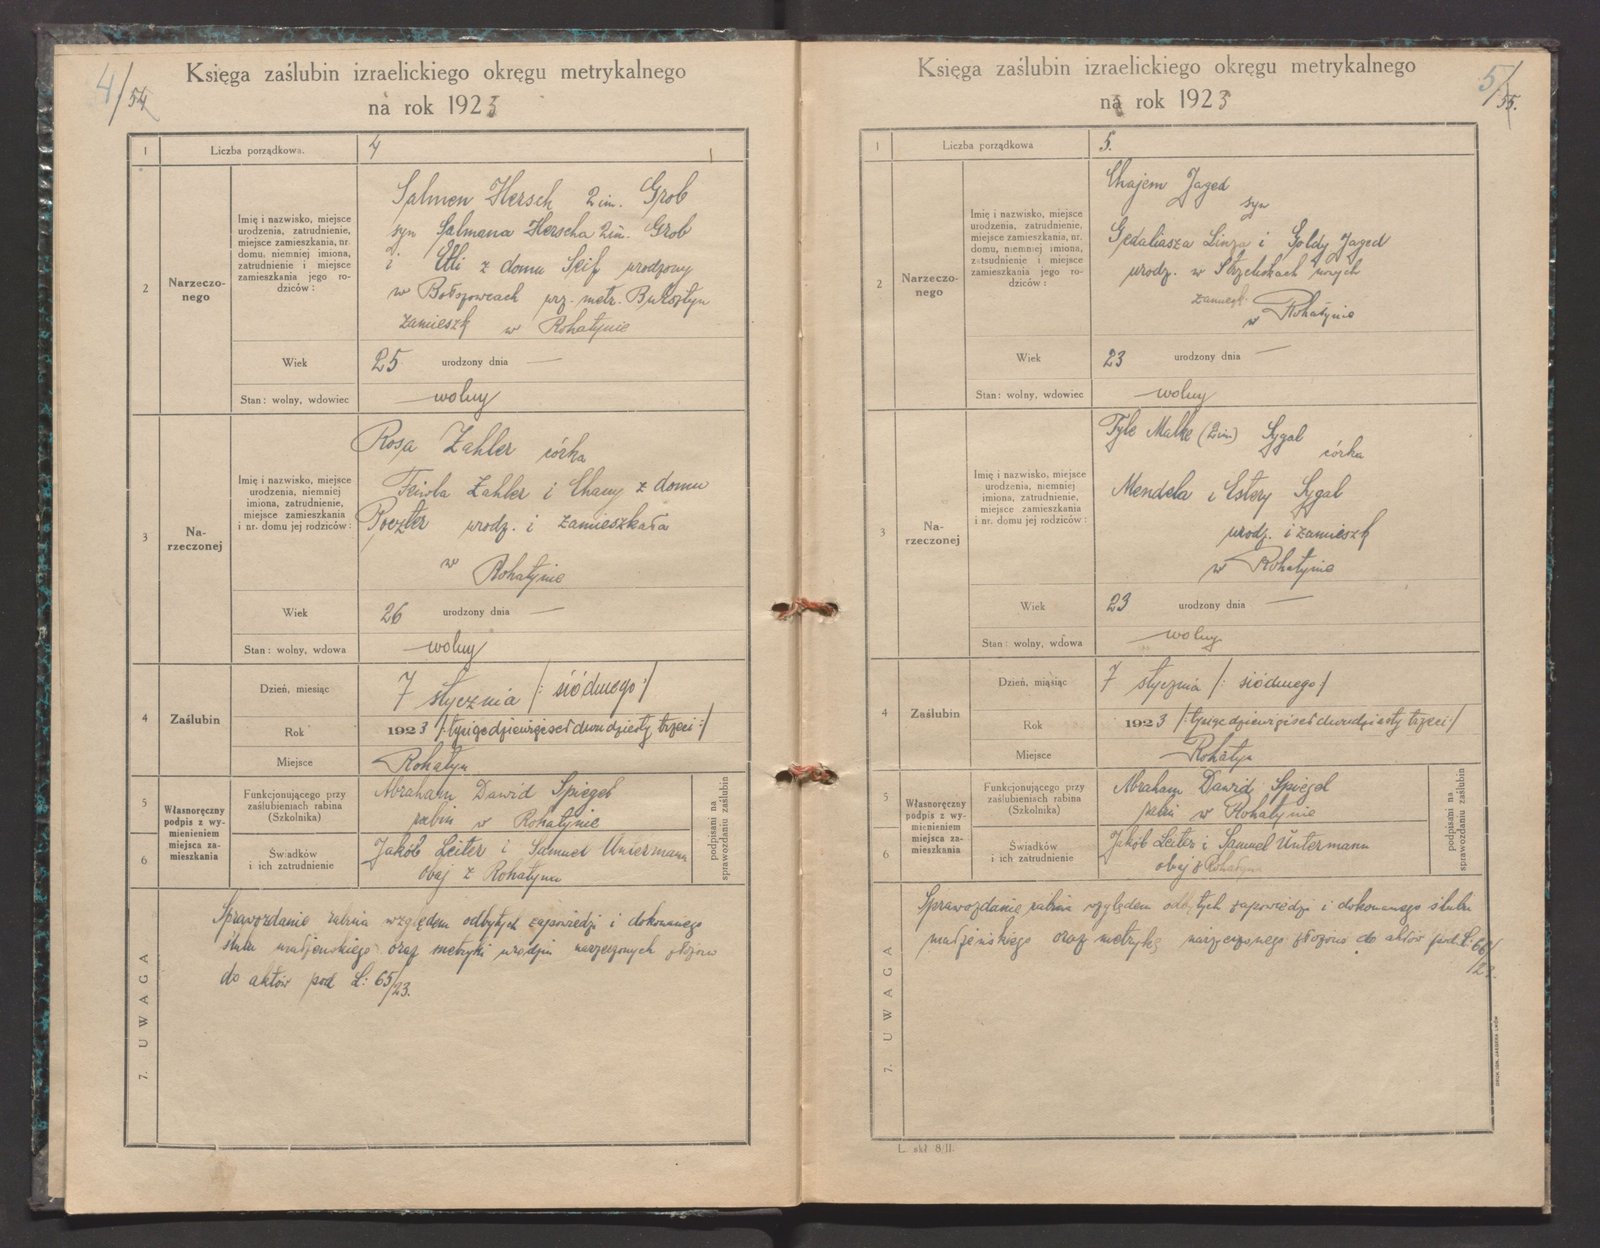 4/54
Księga zaślubin izraelickiego okręgu metrykalnego
na rok 1923
1
Liczba porządkowa.
4
2
Narzeczo-
nego
Imię i nazwisko, miejsce
urodzenia, zatrudnienie,
miejsce zamieszkania, nr.
domu, niemniej imiona,
zatrudnienie i miejsce
zamieszkania jego ro-
dziców :
Salmen Hersch 2 im. Grob
syn Salmana Herscha 2 im. Grob
i Etli z domu Seif urodzony
w Bołszowcach urz. metr. Buksztyn
zamieszk w Rohatynie
Wiek
25
urodzony dnia —
Stan: wolny, wdowiec
wolny
3
Na-
rzeczonej
Imię i nazwisko, miejsce
urodzenia, niemniej
imiona, zatrudnienie,
miejsce zamieszkania
i nr. domu jej rodziców :
Rosa Zahler córka
Feiwla Zahler i Chany z domu
Poczter urodz. i zamieszkała
w Rohatynie
Wiek
26
urodzony dnia —
Stan: wolny, wdowa
wolny
4
Zaślubin
Dzień, miesiąc
7 stycznia /: siódmego :/
Rok
1923 /: tysiącdziewięćset dwudziesty trzeci :/
Miejsce
Rohatyn
5
6
Własnoręczny
podpis z wy-
mienieniem
miejsca za-
mieszkania
Funkcjonującego przy
zaślubieniach rabina
(Szkolnika)
Abraham Dawid Spiegel
rabin w Rohatynie
Świadków
i ich zatrudnienie
Jakób Leiter i Samuel Untermann
obaj z Rohatyna
podpisani na
sprawozdaniu zaślubin
7. UWAGA
Sprawozdanie rabina względem odbytych zapowiedzi i dokonanego
ślubu małżeńskiego oraz metryki urodzin narzeczonych złożono
do aktów pod L: 65/23.
5/55.
Księga zaślubin izraelickiego okręgu metrykalnego
na rok 1923
1
Liczba porządkowa
5.
2
Narzeczo-
nego
Imię i nazwisko, miejsce
urodzenia, zatrudnienie,
miejsce zamieszkania, nr.
domu, niemniej imiona,
zatsudnienie i miejsce
zamieszkania jego ro-
dziców :
Chajem Jaged
syn
Gedaliasza Linza i Goldy Jaged
urodz. w Strzeliskach nowych
zamieszk.
w Rohatynie
Wiek
23
urodzony dnia —
Stan: wolny, wdowiec
wolny
3
Na-
rzeczonej
Imię i nazwisko, miejsce
urodzenia, niemniej
imiona, zatrudnienie,
miejsce zamieszkania
i nr. domu jej rodziców :
Tyle Malke (2 im) Sygal
córka
Mendela i Estery Sygal
urodz. i zamieszk
w Rohatynie
Wiek
23
urodzony dnia —
Stan: wolny, wdowa
wolny
4
Zaślubin
Dzień, miąsiąc
7 stycznia /: siódmego :/
Rok
1923 /: tysiącdziewięćset dwudziesty trzeci :/
Miejsce
Rohatyn
5
6
Własnoręczny
podpis z wy-
mienieniem
miejsca za-
mieszkania
Funkcjonującego przy
zaślubieniach rabina
(Szkolnika)
Abraham Dawid Spiegel
rabin w Rohatynie
Świadków
i ich zatrudnienie
Jakób Leiter i Samuel Untermann
obaj z Rohatyna
podpisani na
sprawozdaniu zaślubin
7. UWAGA
Sprawozdanie rabina względem odbytych zapowiedzi i dokonanego ślubu
małżeńskiego oraz metrykę narzeczonego złożono do aktów pod L: 66/
/23.
L. skł 8/II.